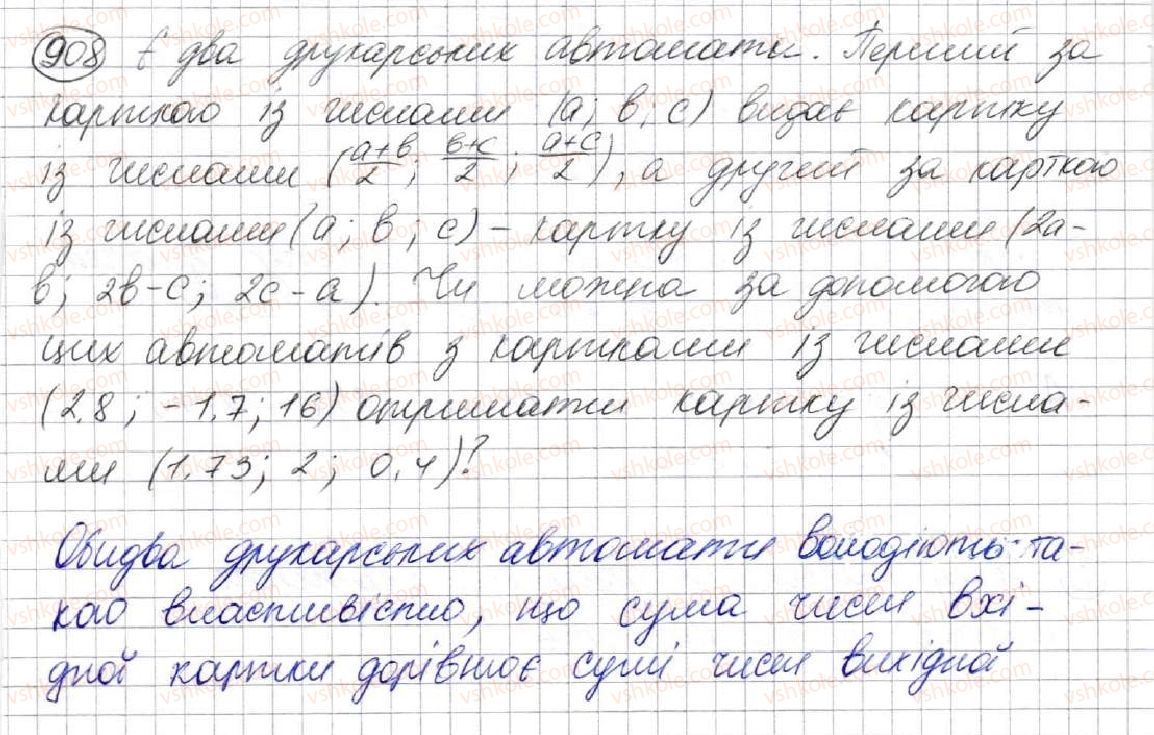 908 Є два друкарських автомати. Перший за
карткою із числами (a; b; c) видає картку
із числами (a+b/2; b+c/2; a+c/2), а другий за карткою
із числами (a; b; c) – картку із числами (2a-
b; 2b-c; 2c-a). Чи можна за допомогою
цих автоматів з картками із числами
(2,8; -1,7; 16) отримати картку із числа-
ми (1,73; 2; 0,4)?
Обидва друкарських автомати володіють та-
кою властивістю, що сума чисел вхі-
дної картки дорівнює сумі чисел вихідної